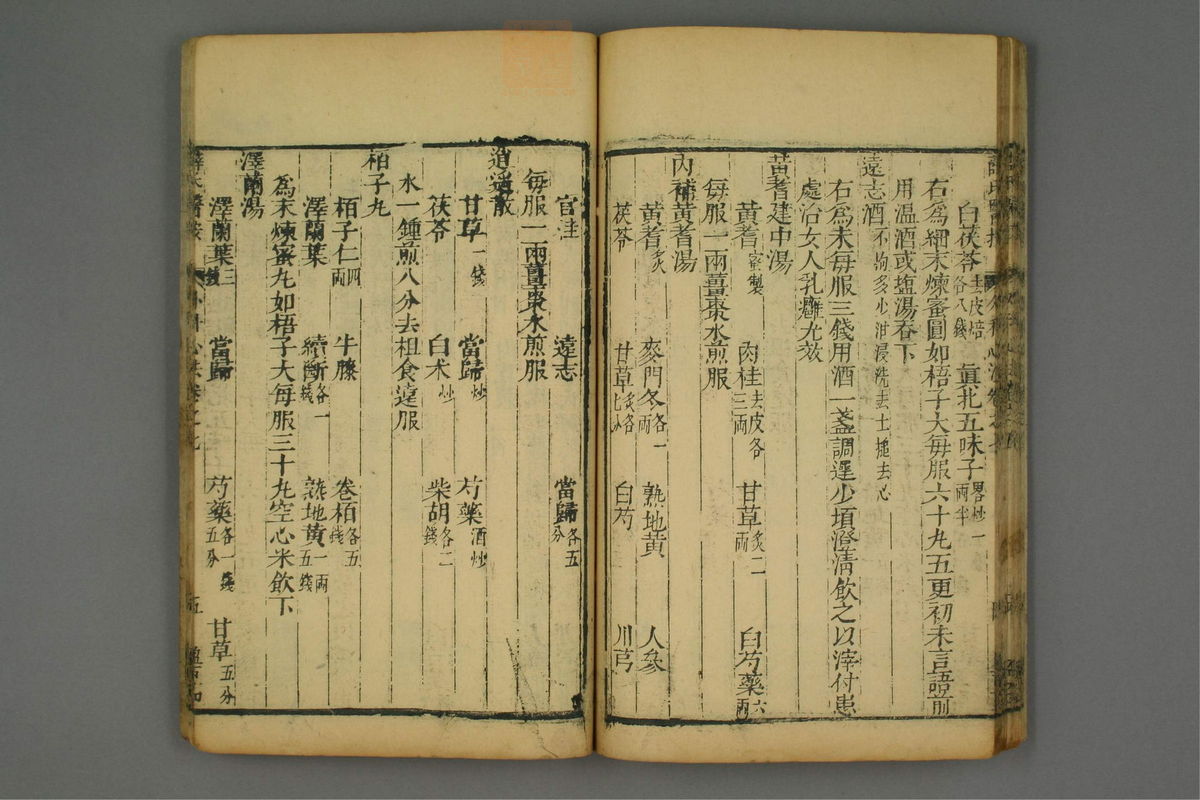 白茯苓去皮焙各八錢 眞北五味子畧炒一兩半
右爲細末煉蜜圓如梧子大每服六十九五更初未言語前
用温酒或塩湯吞下
遠志酒不拘多少泔浸洗去土搥去心
右爲末每服三錢用酒一盞調遲少頃澄清飲之以滓付患
處治女人乳癰尤效
黃耆建中湯
黃耆蜜製 肉桂去皮各三兩 甘草炙二兩 白芍藥六兩
每服一兩薑棗水煎服
內補黃耆湯
黃耆炙 麥門冬各一兩 熟地黃 人參
茯苓 甘草炙各七分 白芍 川芎
官桂 遠志 當歸各五分
每服一兩薑棗水煎服
逍遙散
甘草一錢 當歸炒 芍藥酒炒
茯苓 白朮炒 柴胡各二錢
水一鍾煎八分去柤食遠服
柏子丸
柏子仁四兩 牛膝 卷柏各五錢
澤蘭葉 續斷各一錢 熟地黃一兩五錢
爲末煉蜜丸如梧子大每服三十丸空心米飲下
澤蘭湯
澤蘭葉三錢 當歸 芍藥各一錢五分 甘草五分
薛氏醫按 外科心法卷之七 五